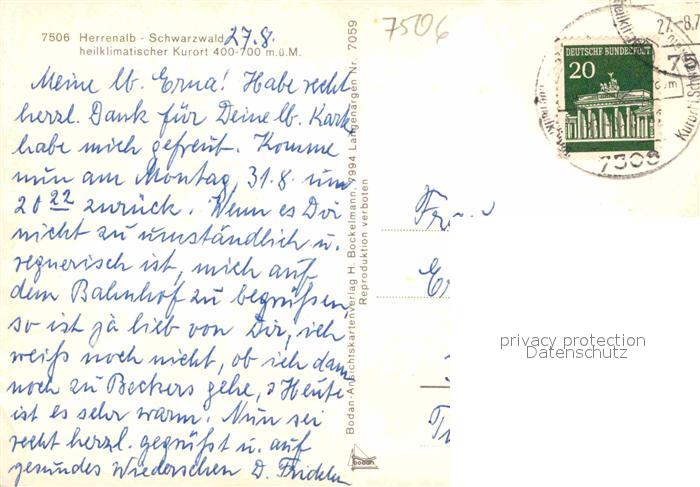 7506 Herrenalb - Schwarzwald 27.8.
heilklimatischer Kurort 400-700 m.ü.M.
Meine lb. Erna! Habe recht
herzl. Dank für Deine lb. Karte
habe mich gefreut. Komme
nun am Montag, 31.8. um
20 22 zurück. Wenn es Dir
nicht zu umständlich u.
regnerisch ist, mich auf
dem Bahnhof zu begrüßen,
so ist ja lieb von Dir, ich
weiß noch nicht, ob ich dann
noch zu Beckers gehe, Heute
ist es sehr warm. Nun sei
recht herzl. gegrüßt u. auf
gesundes Wiedersehen D.
Bodan-Ansichtskartenverlag H. Bockelmann, 7994 Langenargen Nr. 7059
Reproduktion verboten
bodan
7506
DEUTSCHE BUNDESPOST
20
27.-8.7
7506
Kurort
privacy protection
Datenschutz